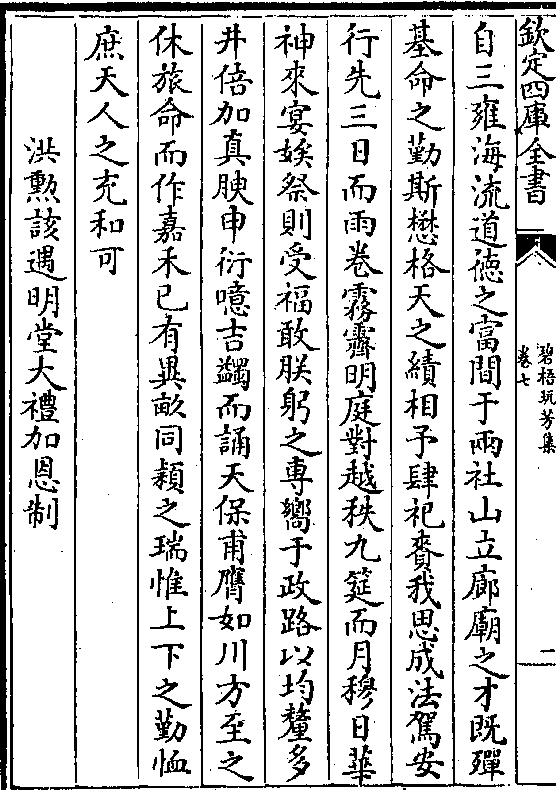 欽定四庫全書
碧梧玩芳集
卷七
一
自三雍海流道德之富間于兩社山立廊廟之才既殫
基命之勤斯懋格天之績相予肆祀賚我思成法駕安
行先三日而雨卷霧霽明庭對越秩九筵而月穆日華
神來宴娭祭則受福敢朕躬之專嚮于政路以均釐多
井倍加真腴申衍噫吉蠲而誦天保甫膺如川方至之
休旅命而作嘉禾已有異畝同穎之瑞惟上下之勤恤
庶天人之充和可
洪勲該遇明堂大禮加恩制